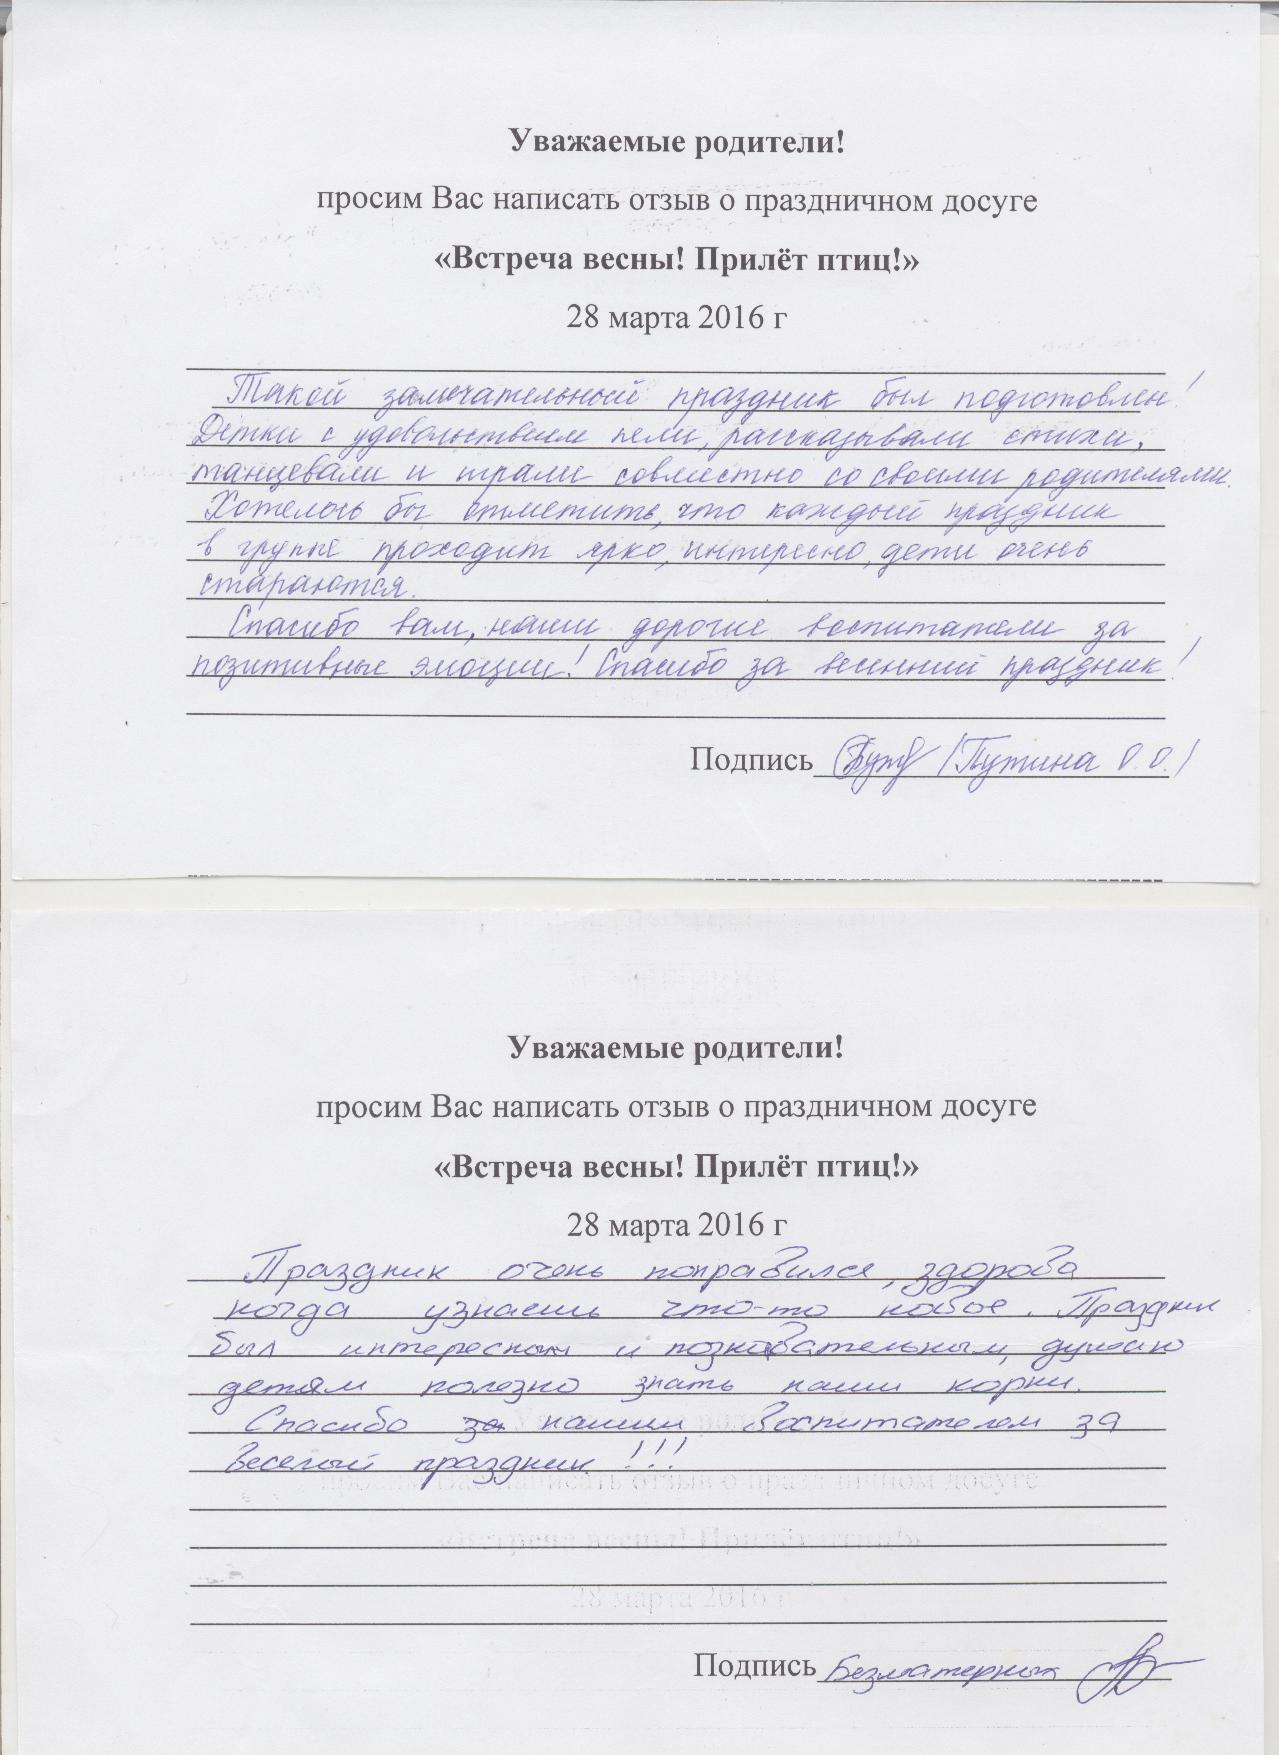 Уважаемые родители!
просим Вас написать отзыв о праздничном досуге
«Встреча весны! Прилёт птиц!»
28 марта 2016 г
Такой замечательный праздник был подготовлен!
Детки с удовольствием пели, рассказывали стихи,
танцевали и играли совместно со своими родителями.
Хотелось бы отметить, что каждый праздник
в групе проходит ярко, интересно, дети очень
стараются.
Спасибо вам, наши дорогие воспитатели за
позитивные эмоции! Спасибо за весенний праздник!
Подпись /Путина О.О./
Уважаемые родители!
просим Вас написать отзыв о праздничном досуге
«Встреча весны! Прилёт птиц!»
28 марта 2016 г
Праздник очень понравился, здорова
когда узнаешь что-то новое. Праздник
был интересным и познавательным, думаю
детям полезно знать наши корни.
Спасибо за нашим воспитателем за
веселый праздник!!!
Подпись Безматерных